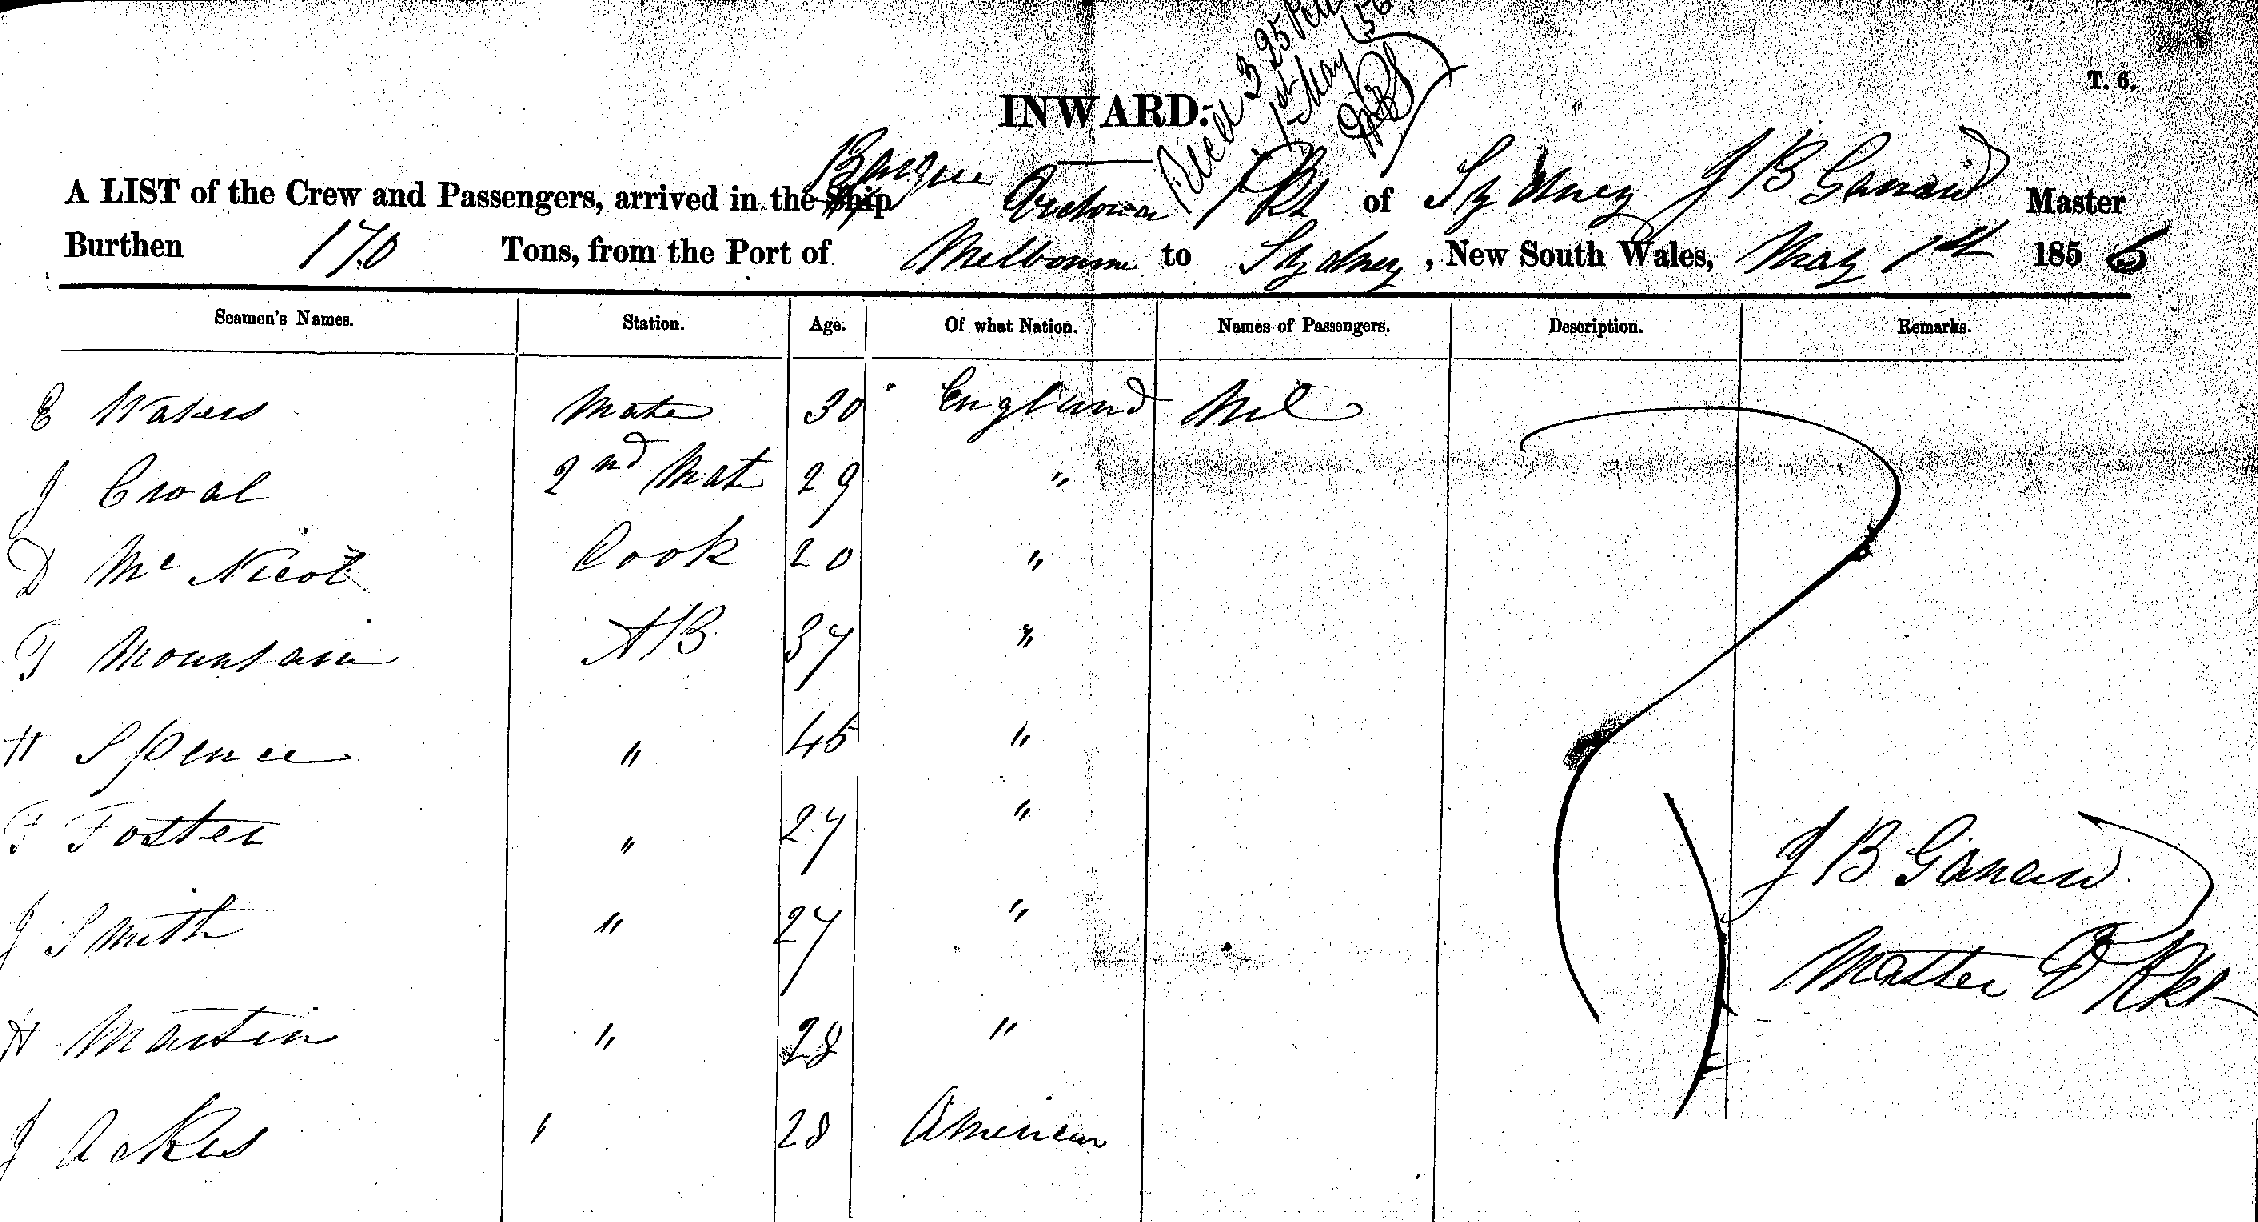 INWARD.
T. 6.
1st May /56
A LIST of the Crew and Passengers, arrived in the Ship Barque of Sydney J B Master
Burthen 170 Tons, from the Port of Melbourne to Sydney, New South Wales, May 1st 1856
Seamen's Names. Station. Age. Of what Nation. Names of Passengers. Description. Remarks.
E Waters Mate 30 England Nil
J Croal 2nd Mat 29 "
D Mc Nicol Cook 20 "
Mountain AB 37 "
H Spence " 45 "
F Foster " 27 "
J Smith " 27 "
H Martin " 28 "
J " 28 American
J B
Master